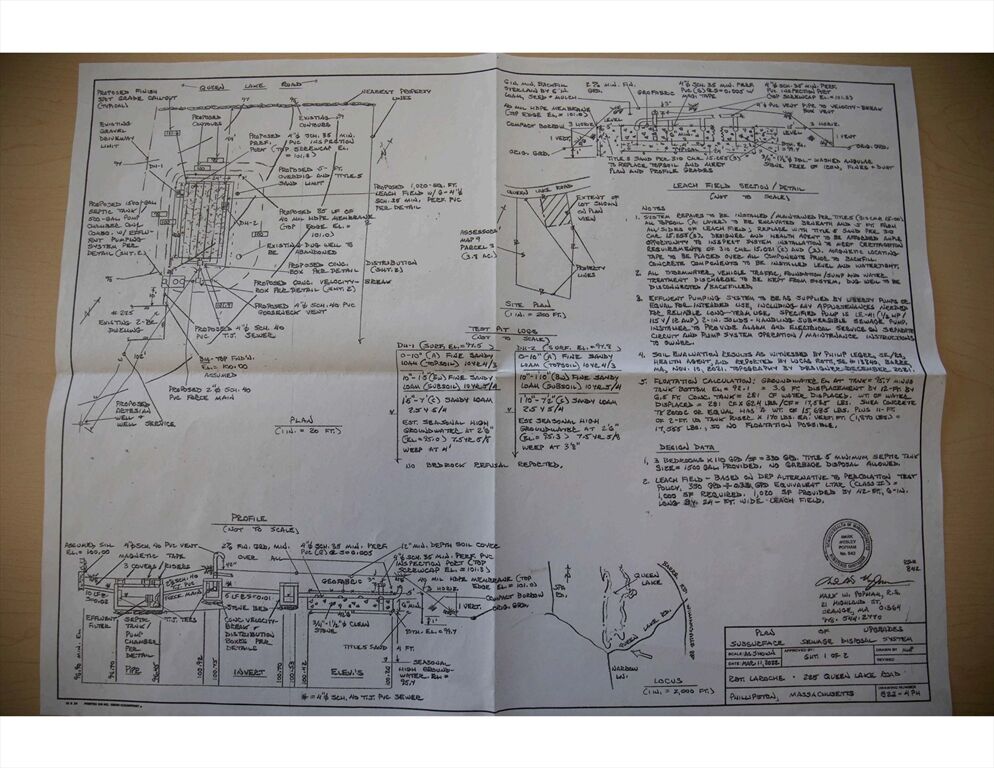 QUEEN LAKE ROAD
PROPOSED FINISH
SPOT GRADE CALLOUT
(TYPICAL)
EXISTING
GRAVEL
DRIVEWAY
LIMIT
PROPOSED
CONTOURS
EXISTING
CONTOURS
NEAREST PROPERTY
LINES
DH-1
PROPOSED 4"Ø SCH. 35 MIN.
PERF. PVC INSPECTION
PORT (TOP SCREWCAP EL.
= 101.3)
PROPOSED 5-FT.
OVERDIG AND TITLE 5
SAND LIMIT
PROPOSED 1,020-SQ. FT.
LEACH FIELD W/ 6-4"Ø
SCH. 35 MIN. PERF. PVC
PER DETAIL
40 MIL HDPE MEMBRANE
(TOP EDGE EL.
= 101.0)
DH-2
PROPOSED 1500-GAL.
SEPTIC TANK/
500-GAL. PUMP
CHAMBER CONC.
COMBO. W/ EFFLU-
ENT PUMPING
SYSTEM PER
DETAIL (SHT. 2)
EXISTING DUG WELL TO
BE ABANDONED
PROPOSED CONC. DISTRIBUTION
BOX PER DETAIL (SHT. 2)
PROPOSED CONC. VELOCITY-BREAK
BOX PER DETAIL (SHT. 2)
PROPOSED 4"Ø SCH. 40 PVC
GOOSENECK VENT
# 225
EXISTING 2-BR.
DWELLING
PROPOSED 4"Ø SCH. 40
PVC T.J. SEWER
BM-TOP FND'N.
EL. = 100.00
ASSUMED
PROPOSED 2"Ø SCH. 40
PVC FORCE MAIN
PROPOSED
ARTESIAN
WELL &
WELL SERVICE
PLAN
(1 IN. = 20 FT.)
6 IN. MIN. BACKFILL
OVERLAIN BY 6 IN.
LOAM, SEED + MULCH
2% MIN. FIN.
GRD.
GEOFABRIC
4"Ø SCH. 35 MIN. PERF.
PVC (6) @ S=0.005 W/
MAG. TAPE
4"Ø SCH. 35 MIN. PERF.
PVC INSPECTION PORT
(TOP SCREWCAP EL. = 101.3)
4"Ø PVC VENT PIPE TO VELOCITY-BREAK
BOX VENT
40 MIL HDPE MEMBRANE
(TOP EDGE EL. = 101.0)
COMPACT BORROW
3 HORIZ.
LEVEL
1 VERT.
ORIG. GRD.
TITLE 5 SAND PER 310 CMR 15.255(3)
TO REPLACE TOPSOIL AND MEET
PLAN AND PROFILE GRADES
3/4"-1 1/2"Ø DBL.-WASHED ANGULAR
STONE FREE OF IRON, FINES + DUST
LEACH FIELD SECTION/DETAIL
(NOT TO SCALE)
QUEEN LAKE ROAD
EXTENT OF
LOT SHOWN
ON PLAN
VIEW
ASSESSOR
MAP 9
PARCEL 3
PROPERTY
LINES
SITE PLAN
(1 IN. = 200 FT.)
TEST PIT LOGS
(NOT TO SCALE)
DH-1 (SURF. EL = 97.5)
0-10" (A) FINE SANDY
LOAM (TOPSOIL) 10 YR 4/3
LOAM (SUBSOIL) 10 YR
SANDY LOAM
2.5 Y 5/4
EST. SEASONAL HIGH
GROUNDWATER AT 2'6"
(EL. = 95.0) 7.5 YR 5/8
WEEP AT 4'
DH-2 (SURF. EL. = 97.8)
0-10" (A) FINE SANDY
LOAM (TOPSOIL) 10 YR 4/3
10"-1'10" (BW) FINE SANDY
LOAM (SUBSOIL) 10 YR 5/4
1'10"-7' (C) SANDY LOAM
2.5 Y 5/4
EST. SEASONAL HIGH
GROUNDWATER AT 2'6"
(EL. = 95.3) 7.5 YR 5/8
WEEP AT 3'8"
NO BEDROCK REFUSAL REPORTED.
NOTES
1. SYSTEM REPAIRS TO BE INSTALLED/MAINTAINED PER TITLE 5 (310 CMR 15.00)
ALL TOPSOIL (A LAYER) TO BE EXCAVATED BENEATH AND 5 FT. FROM
ALL SIDES OF LEACH FIELD; REPLACE WITH TITLE 5 SAND PER 310
CMR 15.255(3). DESIGNER AND HEALTH AGENT TO BE AFFORDED AMPLE
OPPORTUNITY TO INSPECT SYSTEM INSTALLATION TO MEET CERTIFICATION
REQUIREMENTS OF 310 CMR 15.021(2) AND (3). MAGNETIC LOCATING
TAPE TO BE PLACED OVER ALL COMPONENTS PRIOR TO BACKFILL.
CONCRETE COMPONENTS TO BE INSTALLED LEVEL AND WATERTIGHT.
2. ALL STORMWATER, VEHICLE TRAFFIC, FOUNDATION/SUMP AND WATER
TREATMENT DISCHARGE TO BE KEPT FROM SYSTEM, DUG WELL TO BE
DISCONNECTED/BACKFILLED.
3. EFFLUENT PUMPING SYSTEM TO BE AS SUPPLIED BY LIBERTY PUMPS OR
EQUAL FOR INTENDED USE, INCLUDING ANY APPURTENANCES NEEDED
FOR RELIABLE LONG-TERM USE. SPECIFIED PUMP IS LE-41 (4/10 HP/
115 V/12 AMP) 2-IN. SOLIDS-HANDLING SUBMERSIBLE SEWAGE PUMP.
INSTALLER TO PROVIDE ALARM AND ELECTRICAL SERVICE ON SEPARATE
CIRCUIT AND PUMP SYSTEM OPERATION/MAINTENANCE INSTRUCTIONS
TO OWNER.
4. SOIL EVALUATION RESULTS AS WITNESSED BY PHILIP LEGER, SE/RS,
HEALTH AGENT, AND REPORTED BY LUCAS ROTTI, SE #13740, BARRE,
MA, NOV. 10, 2021. TOPOGRAPHY BY DESIGNER DECEMBER 2021.
5. FLOATATION CALCULATION: GROUNDWATER EL. AT TANK = 95.7 MINUS
TANK BOTTOM EL = 92.1 = 3.6 FT. DISPLACEMENT BY 12-FT. BY
6.5 FT. CONC. TANK = 281 CF WATER DISPLACED. WT. OF WATER
DISPLACED = 281 CF X 62.4 LBS/CF = 17,535 LBS. SHEA CONCRETE
TK 2000C OR EQUAL HAS A WT. OF 15,685 LBS. PLUS 11-FT.
OF 2-FT. I.D. TANK RISER X 170 LBS. EA. VERT. FT. (1,870 LBS) =
17,555 LBS; SO NO FLOATATION POSSIBLE.
DESIGN DATA
1. 3 BEDROOMS X 110 GPD/SF = 330 GPD. TITLE 5 MINIMUM SEPTIC TANK
SIZE = 1500 GAL. PROVIDED. NO GARBAGE DISPOSAL ALLOWED.
2. LEACH FIELD - BASED ON DEP ALTERNATIVE TO PERCOLATION TEST
POLICY, 330 GPD ÷ 0.33 GPD EQUIVALENT LTAR (CLASS II) =
1,000 SF REQUIRED. 1,020 SF PROVIDED BY 42-FT., 6-IN.
LONG BY 24-FT. WIDE LEACH FIELD.
PROFILE
(NOT TO SCALE)
ASSUMED SILL
EL. = 100.00
4"Ø SCH. 40 PVC VENT
MAGNETIC TAPE
3 COVERS/RISERS
2% FIN. GRD. MIN.
OVER ALL
4"Ø SCH. 35 MIN. PERF.
PVC (6) @ S=0.005
12" MIN. DEPTH SOIL COVER
4"Ø SCH. 35 MIN. PERF. PVC
INSPECTION PORT (TOP
SCREWCAP EL. = 101.3)
40 MIL HDPE MEMBRANE (TOP
EDGE EL. = 101.0)
GEOFABRIC
3 HORIZ.
COMPACT BORROW
1 VERT.
ORIG. GRD.
2"Ø SCH. 40
PVC
FORCE MAIN
BTM. EL = 99.4
EFFLUENT
FILTER
SEPTIC
TANK/
PUMP
CHAMBER
PER
DETAIL
T.J. TEES
STONE BED
CONC. VELOCITY-
BREAK +
DISTRIBUTION
BOXES PER
DETAILS
3/4"-1 1/2"Ø CLEAN
STONE
TITLE 5 SAND
4 FT.
SEASONAL
HIGH GROUND-
WATER EL =
95.4
PIPE
INVERT
ELEV.'S
# = 4"Ø SCH. 40 T.J. PVC SEWER
QUEEN
LAKE
QUEEN LAKE RD.
NARROW
LN.
LOCUS
(1 IN. = 2,000 FT.)
MARK
WESLEY
POPHAM
MARK W. POPHAM, R.S.
21 HIGHLAND ST.
ORANGE, MA 01364
978-544-2770
PLAN OF UPGRADES
SUBSURFACE SEWAGE DISPOSAL SYSTEM
SCALE: AS SHOWN
APPROVED BY
DRAWN BY
DATE: MAR. 11, 2022
SHT. 1 OF 2
REVISED
ROT. LAROCHE - 225 QUEEN LAKE ROAD
PHILLIPSTON, MASSACHUSETTS
DRAWING NUMBER
S22-494